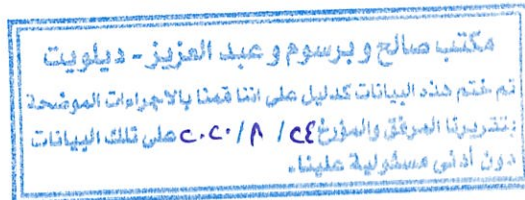 مكتب صالح و برسوم و عبد العزيز - ديلويت
تم ختم هذه البيانات كدليل على اننا قمنا بالاجراءات الموضحة
بتقريرنا المرفق والمؤرخ ٢٤ / ٨ / ٢٠٢٠ على تلك البيانات
دون أدنى مسئولية علينا.